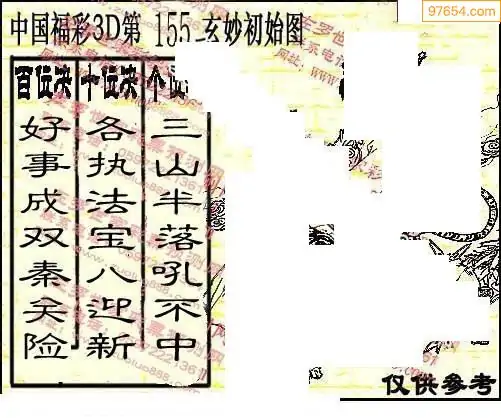 97654.com
中国福彩3D第 155 玄妙初始图
百位决
十位决
个位
好事成双秦关险
各执法宝八迎新
三山半落吼不中
仅供参考